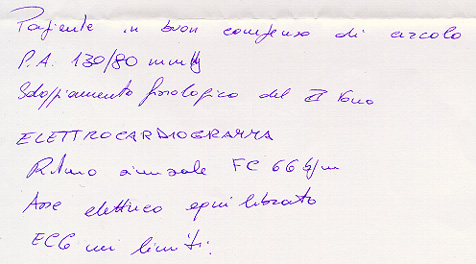 Paziente in buon compenso di circolo
P.A. 130/80 mmHg
Sdoppiamento fisiologico del II tono
ELETTROCARDIOGRAMMA
Ritmo sinusale FC 66 b/m
Asse elettrico equilibrato
ECG nei limiti.